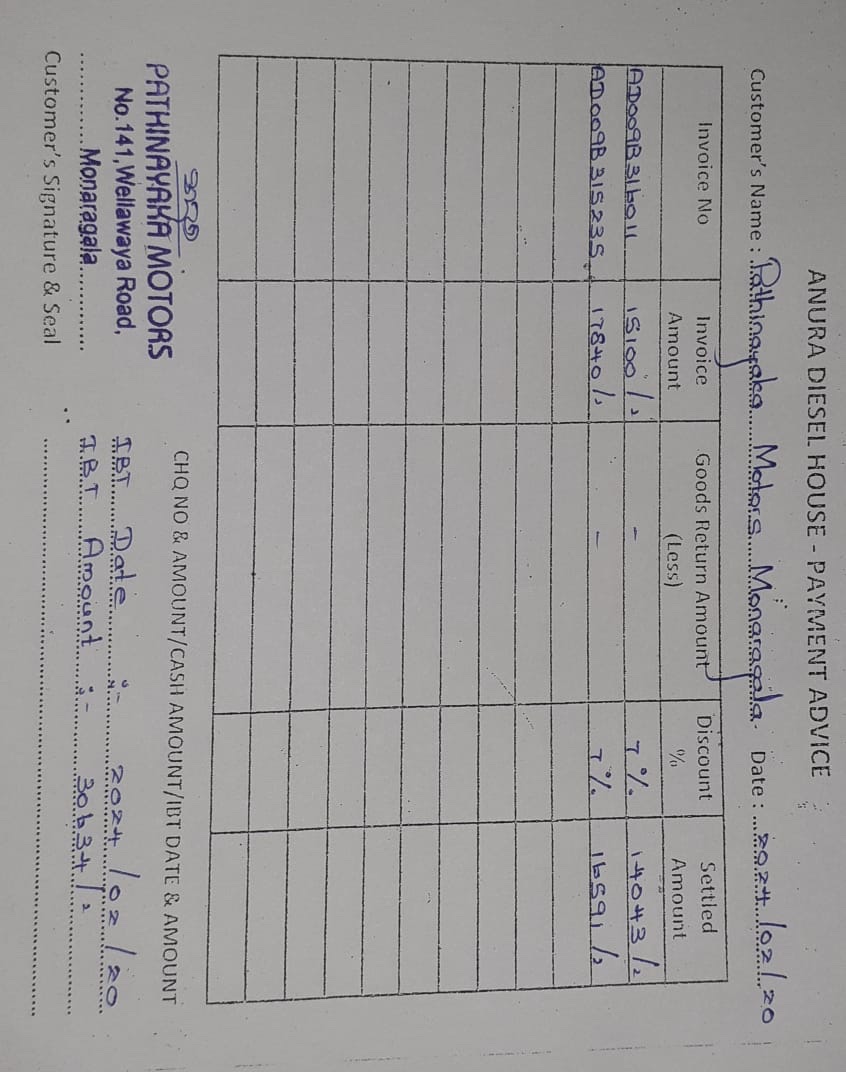 ANURA DIESEL HOUSE - PAYMENT ADVICE
Customer's Name : Pathinayaka Motors Monaragala. Date : 2024/02/20
Invoice No Invoice Amount Goods Return Amount (Less) Discount % Settled Amount
AD009B316011 15100/= - 7% 14043/=
AD009B315235 17840/= - 7% 16591/=
CHQ NO & AMOUNT/CASH AMOUNT/IBT DATE & AMOUNT
PATHINAYAKA MOTORS
No.141,Wellawaya Road, IBT Date :- 2024/02/20
Monaragala IBT Amount :- 30634/=
Customer's Signature & Seal